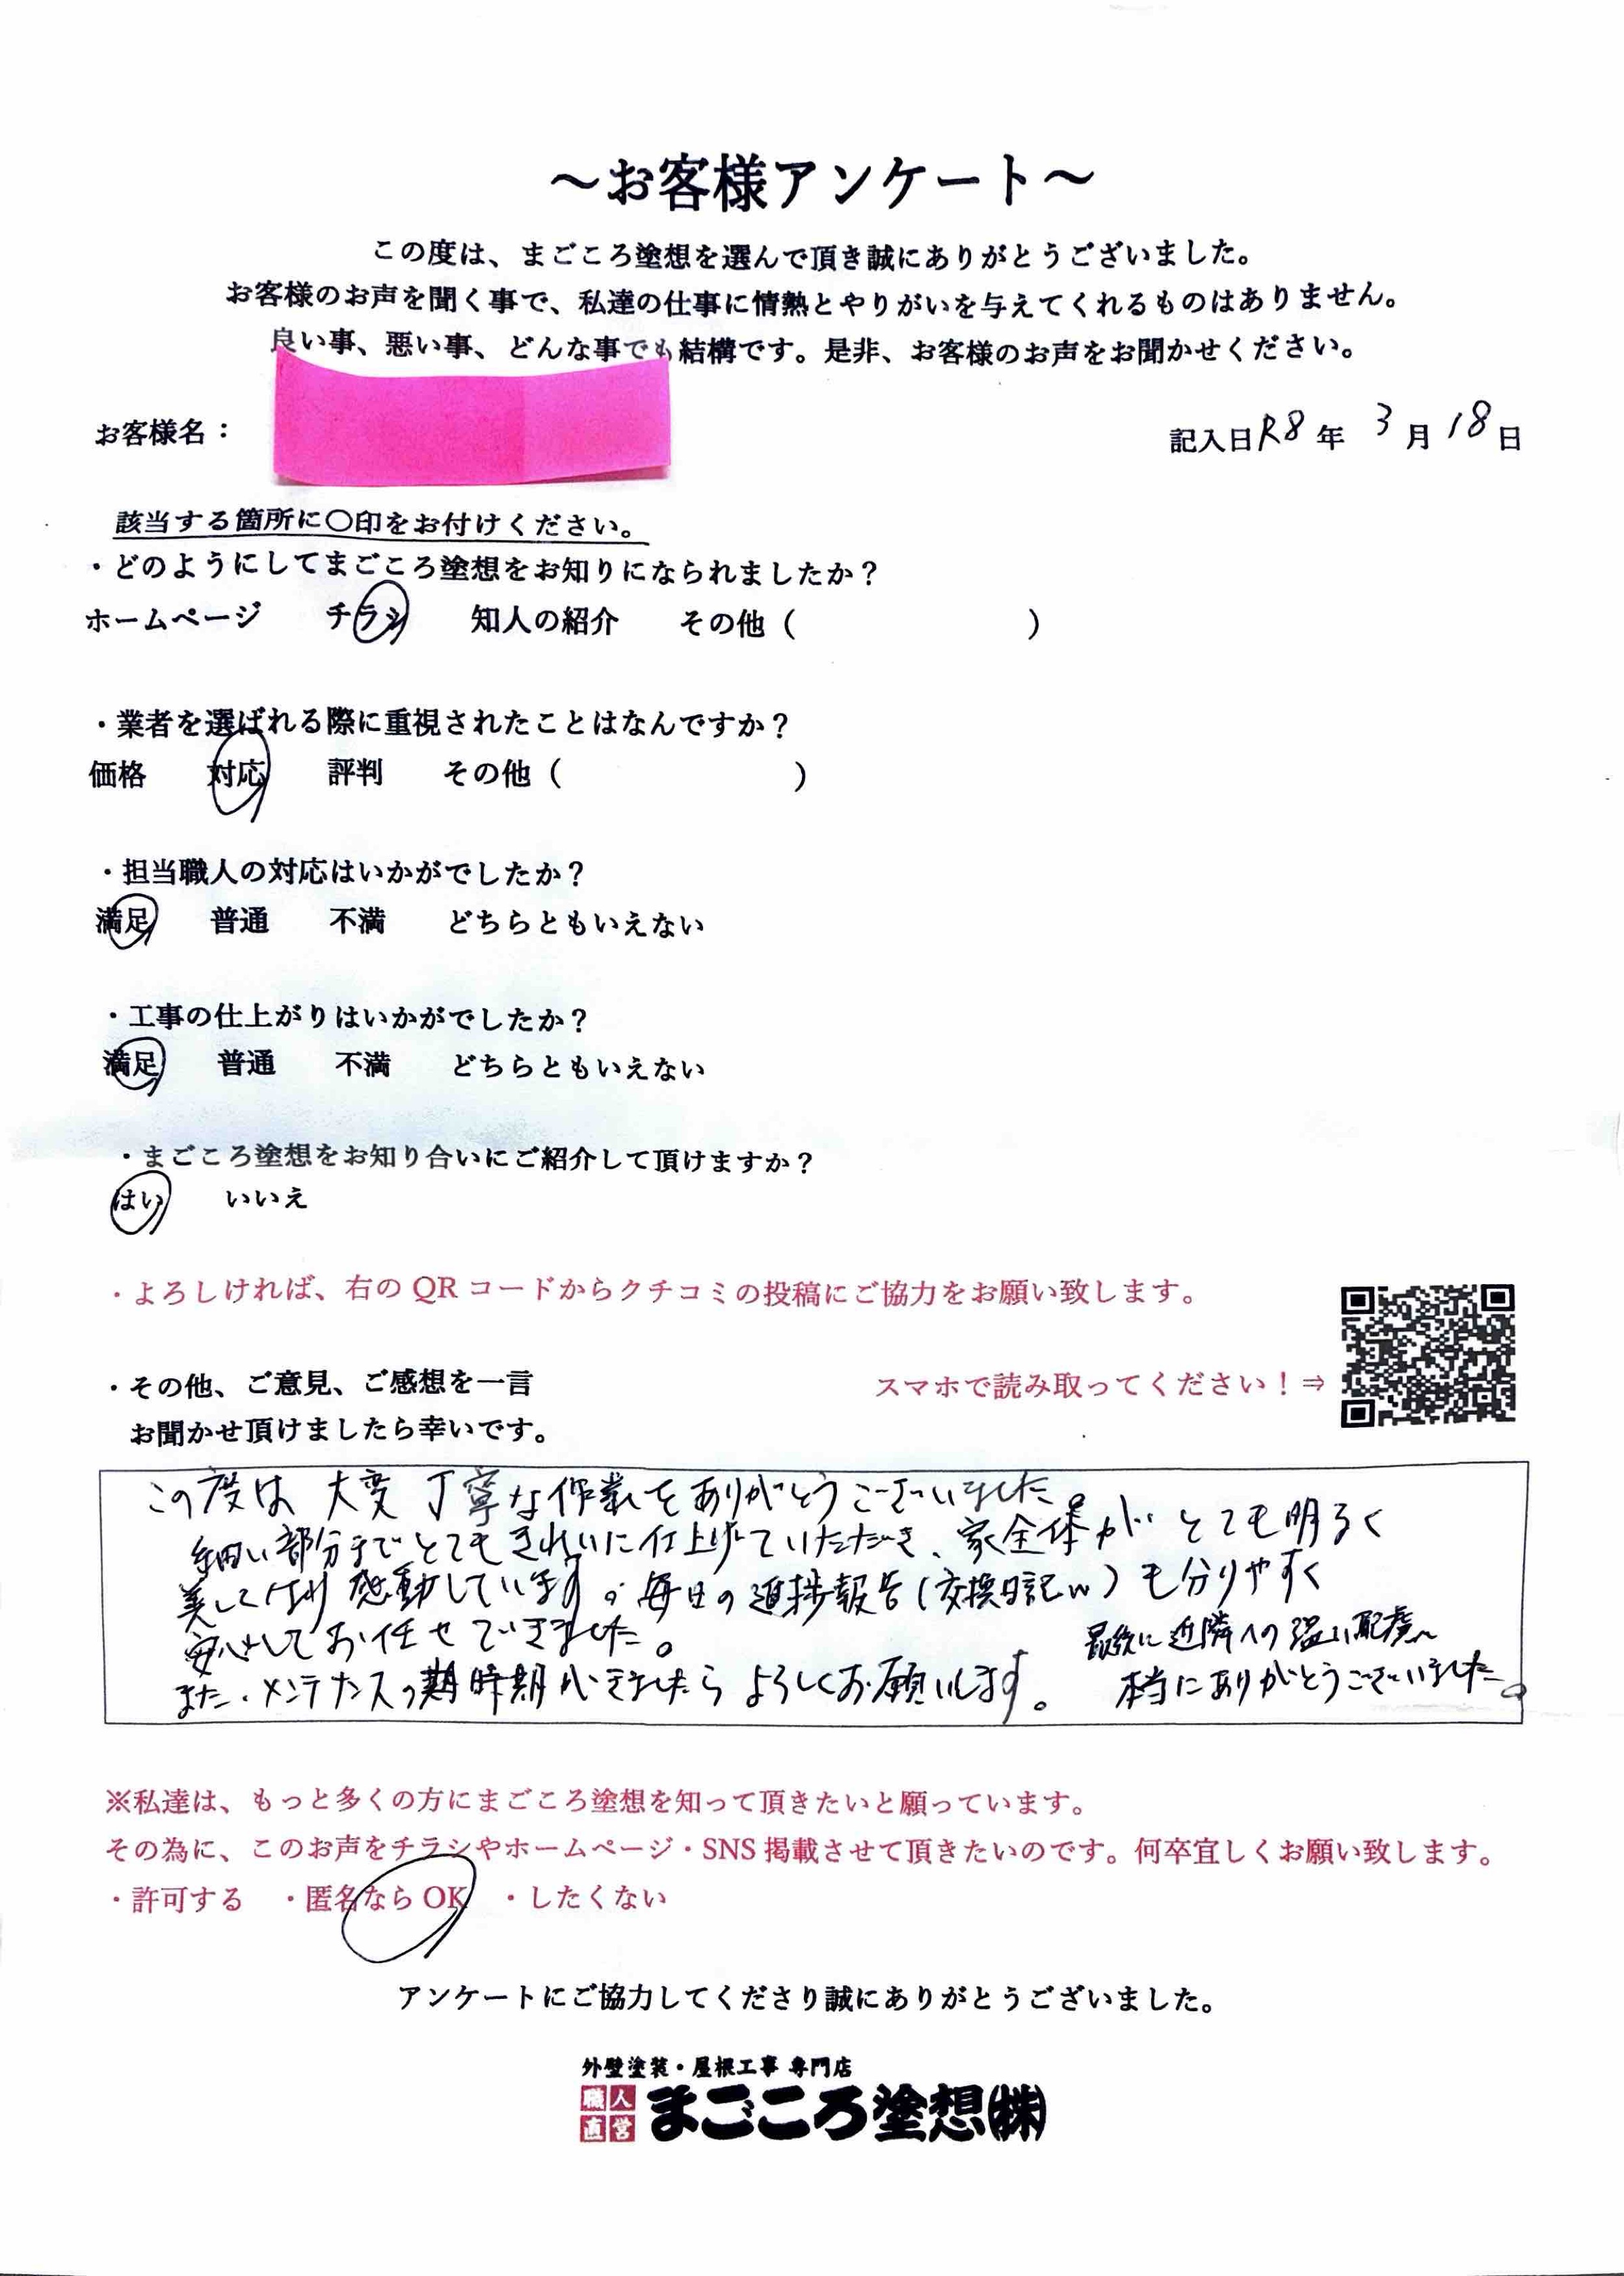 ～お客様アンケート～
この度は、まごころ塗想を選んで頂き誠にありがとうございました。
お客様のお声を聞く事で、私達の仕事に情熱とやりがいを与えてくれるものはありません。
良い事、悪い事、どんな事でも結構です。是非、お客様のお声をお聞かせください。
お客様名：
記入日R8年 3月18日
該当する箇所に〇印をお付けください。
・どのようにしてまごころ塗想をお知りになられましたか？
ホームページ チラシ 知人の紹介 その他（ ）
・業者を選ばれる際に重視されたことはなんですか？
価格 対応 評判 その他（ ）
・担当職人の対応はいかがでしたか？
満足 普通 不満 どちらともいえない
・工事の仕上がりはいかがでしたか？
満足 普通 不満 どちらともいえない
・まごころ塗想をお知り合いにご紹介して頂けますか？
はい いいえ
・よろしければ、右のQRコードからクチコミの投稿にご協力をお願い致します。
・その他、ご意見、ご感想を一言
スマホで読み取ってください！⇒
お聞かせ頂けましたら幸いです。
この度は 大変 丁寧な作業をありがとうございました。
細い部分までとてもきれいに仕上げていただき、家全体が とても明るく
美しくなり 感動しています。毎日の進捗報告(交換日記w)も分りやすく
安心してお任せできました。
また、メンテナンスの時期がきましたら よろしくお願いします。
最後に近隣への 配慮
本当にありがとうございました。
※私達は、もっと多くの方にまごころ塗想を知って頂きたいと願っています。
その為に、このお声をチラシやホームページ・SNS掲載させて頂きたいのです。何卒宜しくお願い致します。
・許可する ・匿名ならOK ・したくない
アンケートにご協力してくださり誠にありがとうございました。
外壁塗装・屋根工事 専門店
職人直営 まごころ塗想㈱